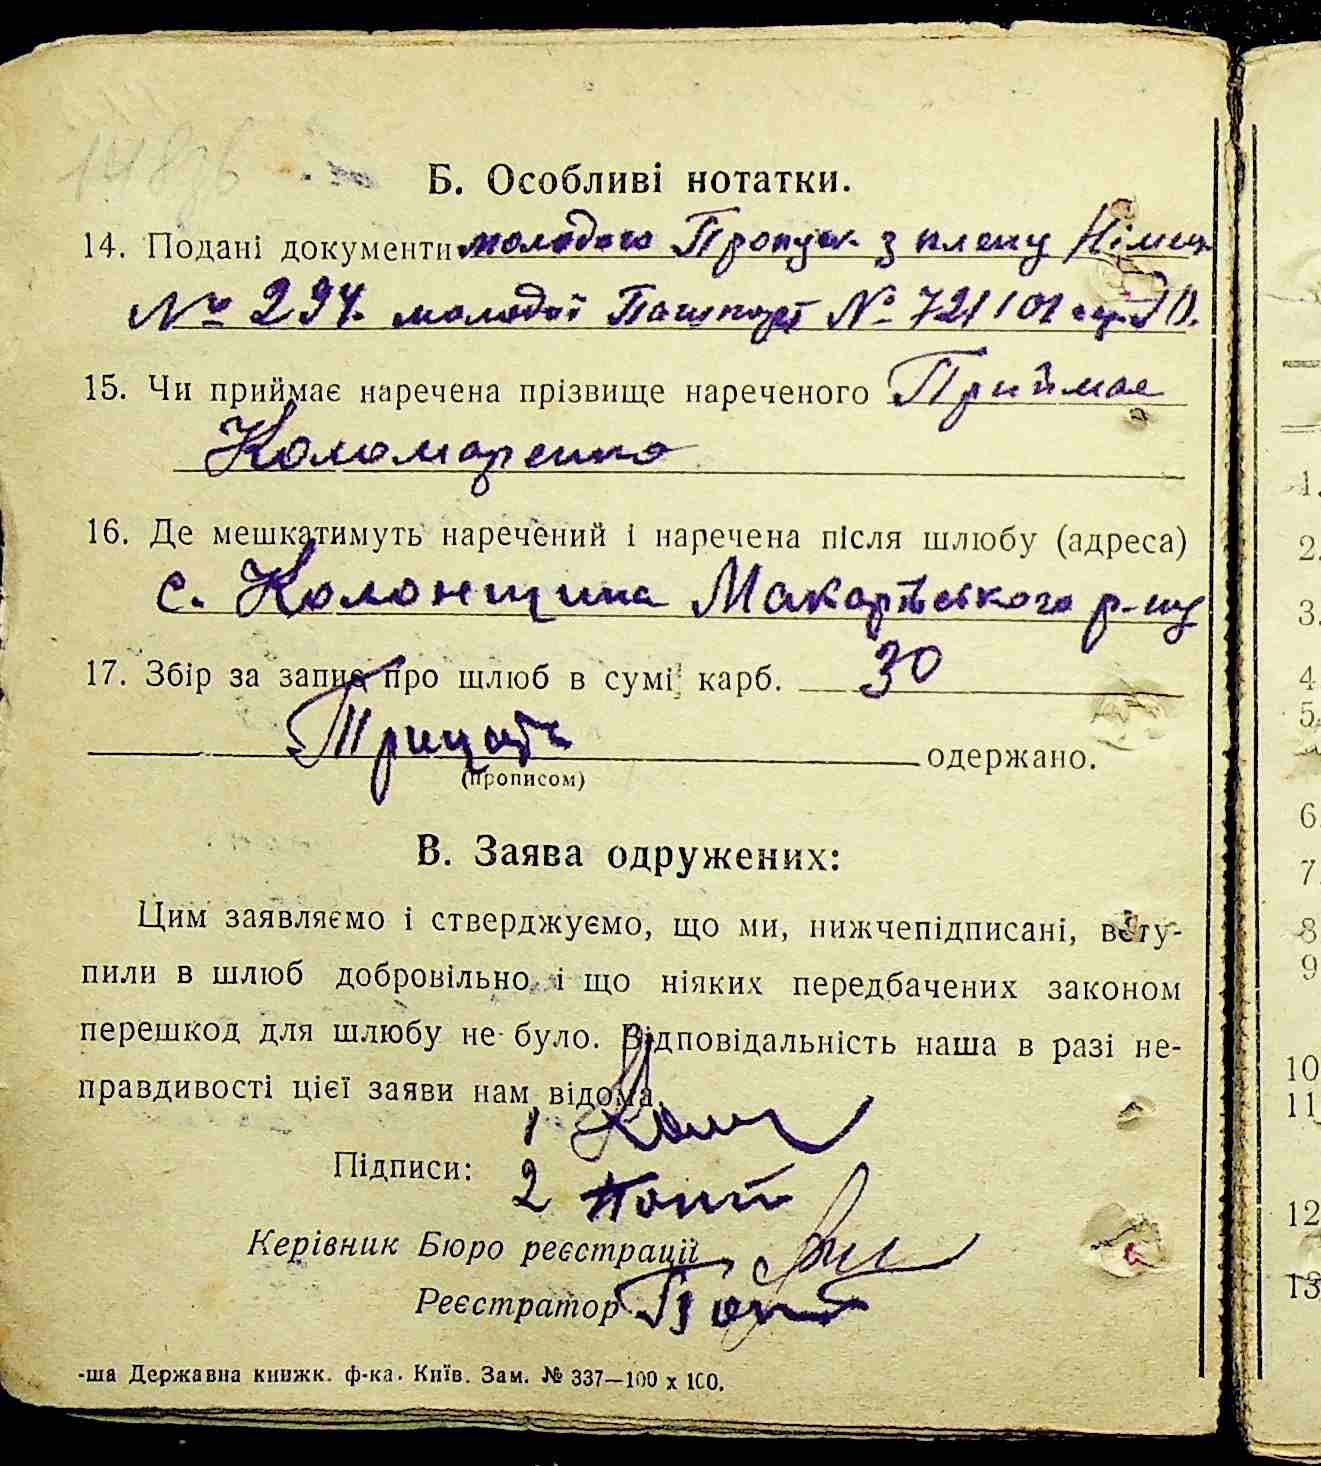 Б. Особливі нотатки.
14. Подані документи молодого Пропуск з плену Німец.
№ 294. молодої Пашпорт № 721101
15. Чи приймає наречена прізвище нареченого Приймає
Коломаренко
16. Де мешкатимуть наречений і наречена після шлюбу (адреса)
с. Колонщина Макарівського р-ну
17. Збір за запис про шлюб в сумі карб. 30
Трицать одержано.
(прописом)
В. Заява одружених:
Цим заявляємо і стверджуємо, що ми, нижчепідписані, всту-
пили в шлюб добровільно і що ніяких передбачених законом
перешкод для шлюбу не було. Відповідальність наша в разі не-
правдивості цієї заяви нам відома.
1
Підписи:
2
Керівник Бюро реєстрації
Реєстратор
-ша Державна книжк. ф-ка. Київ. Зам. № 337—100 х 100.
1.
2.
3.
4
5.
6.
7.
8
9
10
11
12
13